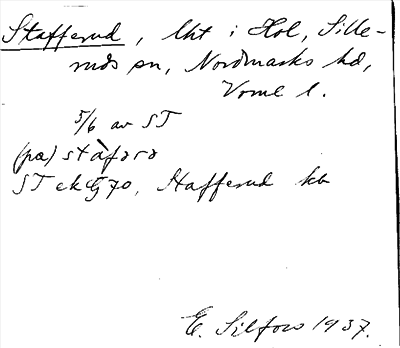 Stafferud, lht i Hol, Sille-
ruds sn, Nordmarks hd,
Värml l.
5/6 av ST
(på) stàfərə
ST ek 70, Stafferud kb
E. Silfors 1937.